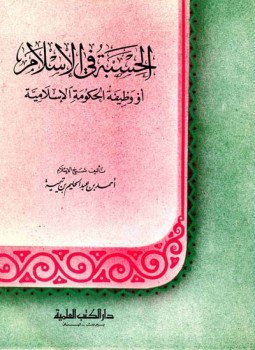 الحسبة في الإسلام
أو وظيفة الحكومة الإسلامية
تأليف شيخ الإسلام
أحمد بن عبد الحليم بن تيمية
دار الكتب العلمية
بيروت - لبنان